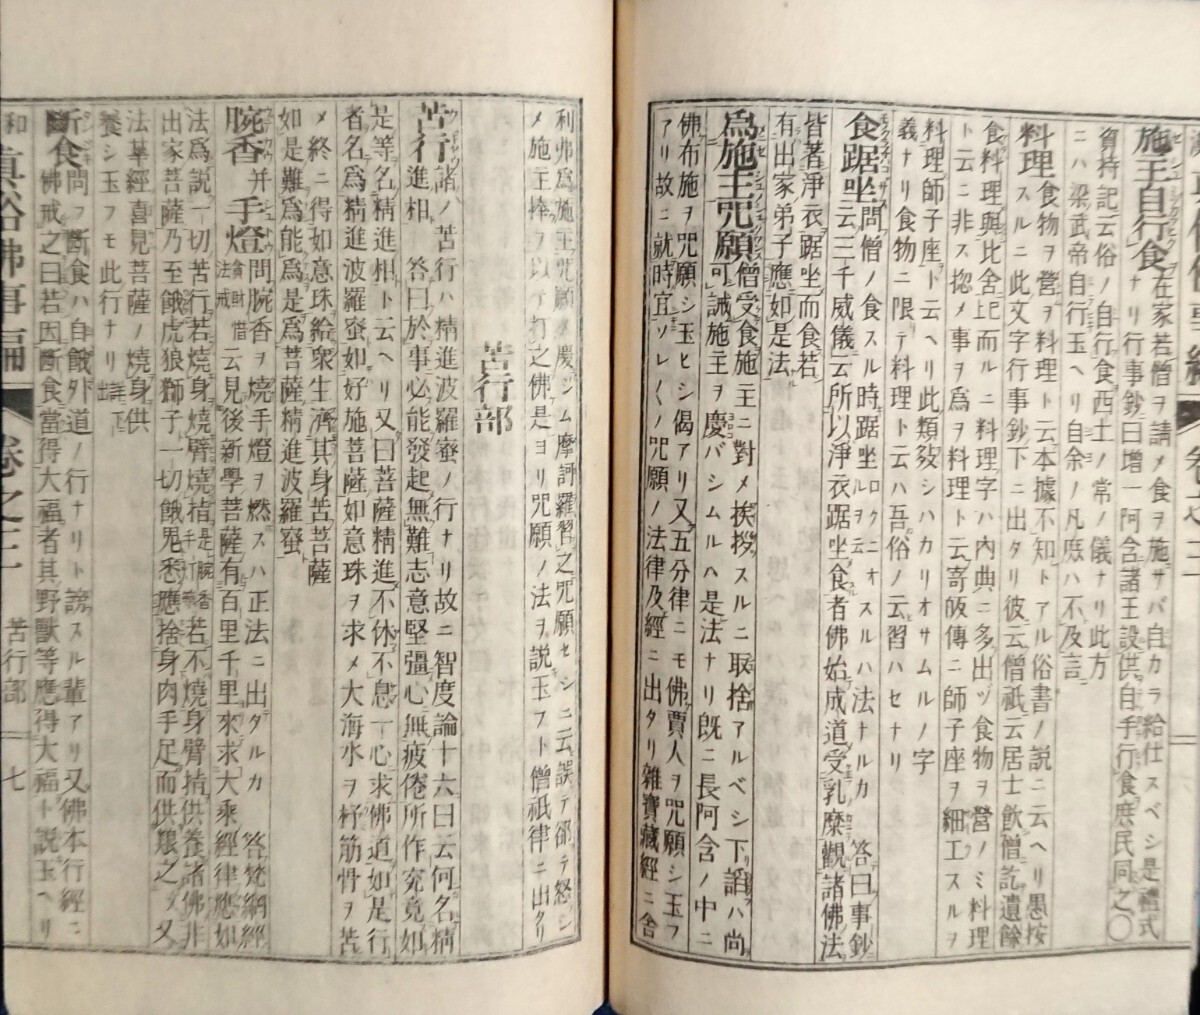 施主自行食 在家若僧ヲ請メ食ヲ施サバ自カラ給仕スベシ是禮式
ナリ行事鈔曰增一阿含諸王設供自手行食庶民同之〇
資持記云俗ノ自行食西土ノ常ノ儀ナリ此方
ニハ梁武帝自行玉ヘリ自余ノ凡庶ハ不及言
料理 食物ヲ營ヲ料理ト云本據不知トアル俗書ノ説ニ云ヘリ愚按
スルニ此文字行事鈔下ニ出タリ彼云僧祇云居士飮僧訖遺餘
食料理與比舍上已而ルニ料理字ハ内典ニ多出ヅ食物ヲ營ノミ料理
ト云ニ非ス惣メ事ヲ爲ヲ料理ト云寄皈傳ニ師子座ヲ細工スルヲ
料理師子座ト云ヘリ此類殊シハカリオサムルノ字
義ナリ食物ニ限テ料理ト云ハ吾俗ノ云習ハセナリ
食踞坐 問僧ノ食スル時踞坐ロクニオルヲ云スルハ法ナルカ 答曰事鈔
云三千威儀云所以淨衣踞坐食者佛始成道受乳糜觀諸佛法
皆著淨衣踞坐而食若
有出家弟子應如是法
爲施主咒願 僧受食施主ニ對メ挨拶スルニ取捨アルベシ下謟ハ尚
可誡施主ヲ慶バシムルハ是法ナリ既ニ長阿含ノ中ニ
佛布施ヲ咒願シ玉ヒシ偈アリ又五分律ニモ佛賈人ヲ咒願シ玉フ
アリ故ニ就時宜ソレ〱ノ咒願ノ法律及經ニ出タリ雜寶藏經ニ舍
利弗爲施主咒願メ慶シム摩訶羅習之咒願セシニ云誤ア郤テ怒シ
メ施主捧ヲ以テ打之佛是ヨリ咒願ノ法ヲ説玉フト僧祇律ニ出タリ
苦行部
苦行 諸ノ苦行ハ精進波羅蜜ノ行ナリ故ニ智度論十六曰云何名精
進相 答曰於事必能發起無難志意堅彊心無疲倦所作究竟如
是等名精進相ト云ヘリ又曰菩薩精進不休不息一心求佛道如是行
者名爲精進波羅蜜如好施菩薩如意珠ヲ求メ大海水ヲ杼筋骨ヲ苦
メ終ニ得如意珠給衆生濟其身苦菩薩
如是難爲能爲是爲菩薩精進波羅蜜
腕香并手燈 貪財惜法戒 問腕香ヲ燒手燈ヲ燃スハ正法ニ出タルカ 答梵網經
云見後新學菩薩有百里千里來求大乘經律應如
法爲説一切苦行若燒身燒臂燒指 是腕香手灯等 若不燒身臂指供養諸佛非
出家菩薩乃至餓虎狼獅子一切餓鬼悉應捨身肉手足而供飬之又
法華經喜見菩薩ノ燒身供
養シ玉フモ此行ナリ
斷食 問フ斷食ハ自餓外道ノ行ナリト謗スル輩アリ又佛本行經ニ
佛戒之曰若因斷食當得大福者其野獸等應得大福ト説玉ヘリ
和 眞俗佛事編 卷之二 苦行部 七